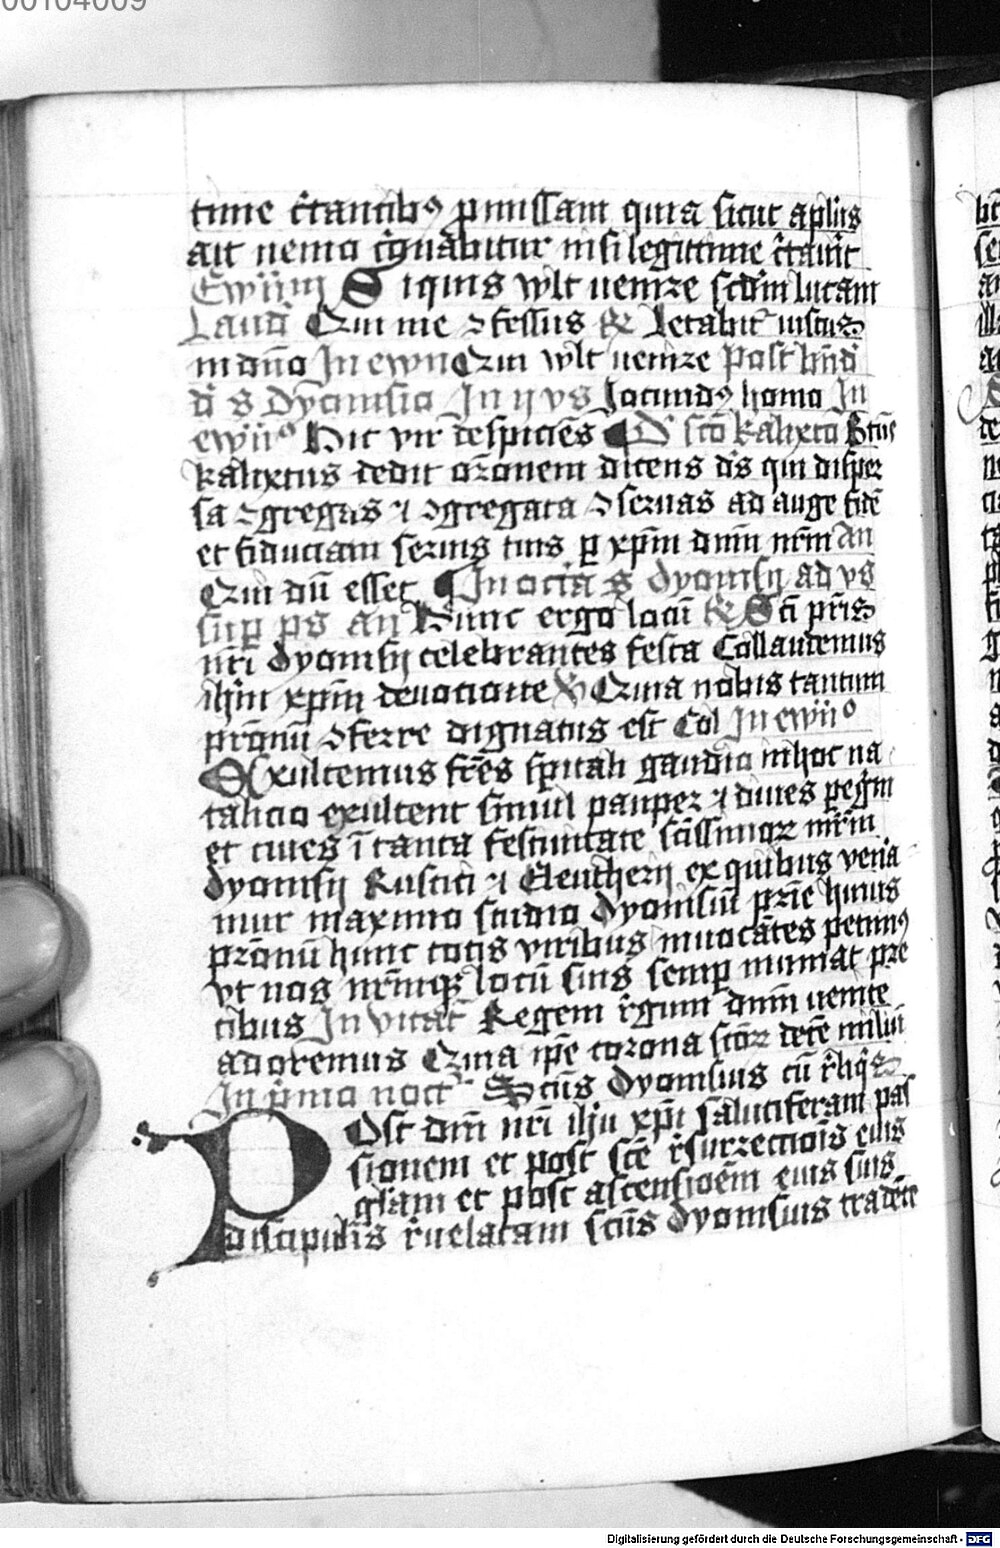 00104009
time c̃tantibꝰ ꝓmissam quia sicut aplūs
ait nemo c̃onabitur nisi legittime c̃tauit
Ewūm Si quis vult uenire scdm̄ lucam
Laud̄ Qui me ↄfessus &c̄ Letabit̄ iustus
in dn̄o In ewn Qui vult uenire Post bn̄d̄
d̄ s Dyonisio In ij vs Iocundꝰ homo In
ewūo Hic vir despiciēs ¶ D̄ sc̄o kalixto Btūs
kalixtus dedit or̄onem dicens d̄s qui disper
sa ↄgregas ⁊ ↄgregata ↄseruas ad auge fidē
et fiduciam seruis tuis ꝑ xp̄m dn̄m nr̄m An
Qui dū esset ¶ In octīa s dyonisij ad vs
suꝑ ps an Hunc ergo locū &c̄ Sc̄i pr̄is
nr̄i dyonisij celebrantes festa Collaudemus
ih̄m xp̄m deuotione Qͥ Quia nobis tantum
pr̄onū ↄferre dignatus est Col In ewūo
Exultemus fr̄es sp̄uali gaudio in hoc na
talicio exultent simul pauper ⁊ diues ꝑegr̄in
et ciues ī tanta festiuitate sc̄issimoꝝ mr̄m
dyonisij Rustici ⁊ Eleutherij ex quibus venīa
mur maximo studio dyonisiū pr̄ie huius
pr̄onū hunc totis viribus inuocātes petimꝰ
vt nos nr̄mqꝫ locū suis semꝑ muniat pre
cibus In vitat̄ Regem r̄gum dn̄m uenite
adoremus Quia ip̄e corona sc̄oꝝ dec̄e milui
In p̄mo noct̄ Sc̄ūs dyonisius cū r̄liqͥs
Post dn̄i nr̄i ih̄u xp̄i salutiferam pas
sionem et post sc̄e r̄surrectiōis eius
gl̄iam et post ascensioēm eius suis
discipulis r̄uelatam sc̄ūs dyonisius tradēte
Digitalisierung gefördert durch die Deutsche Forschungsgemeinschaft - DFG